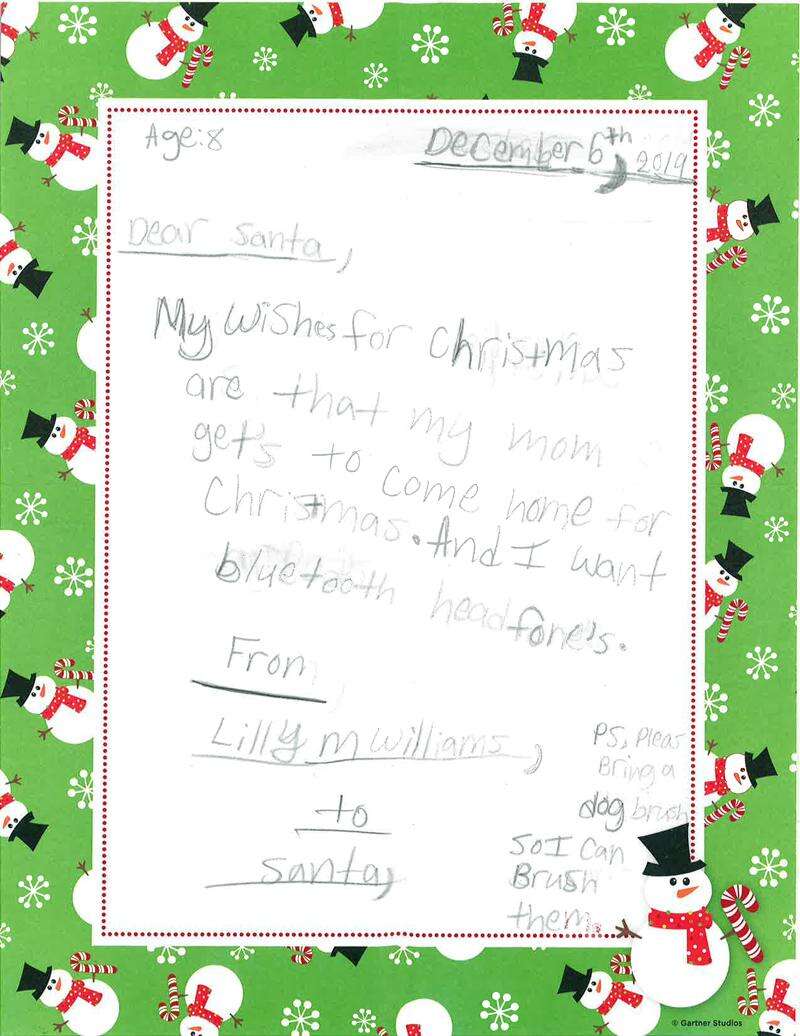 Age:8
December 6th, 2019
Dear Santa,
My wishes for christmas
are that my mom
get's to come home for
Christmas. And I want
bluetooth headfone's.
From
Lilly m williams,
to
santa,
PS, Pleas
Bring a
dog brush
so I can
Brush
them.
© Gartner Studios